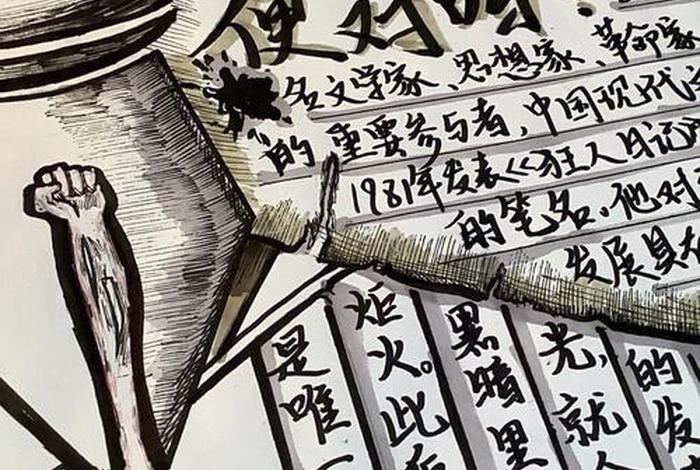 使对
名文学家、思想家、革命家
的重要参与者，中国现代
1981年发表《狂人日记
的笔名，他对
发展具有
的发
光，就
黑暗里
炬火。此
是唯一